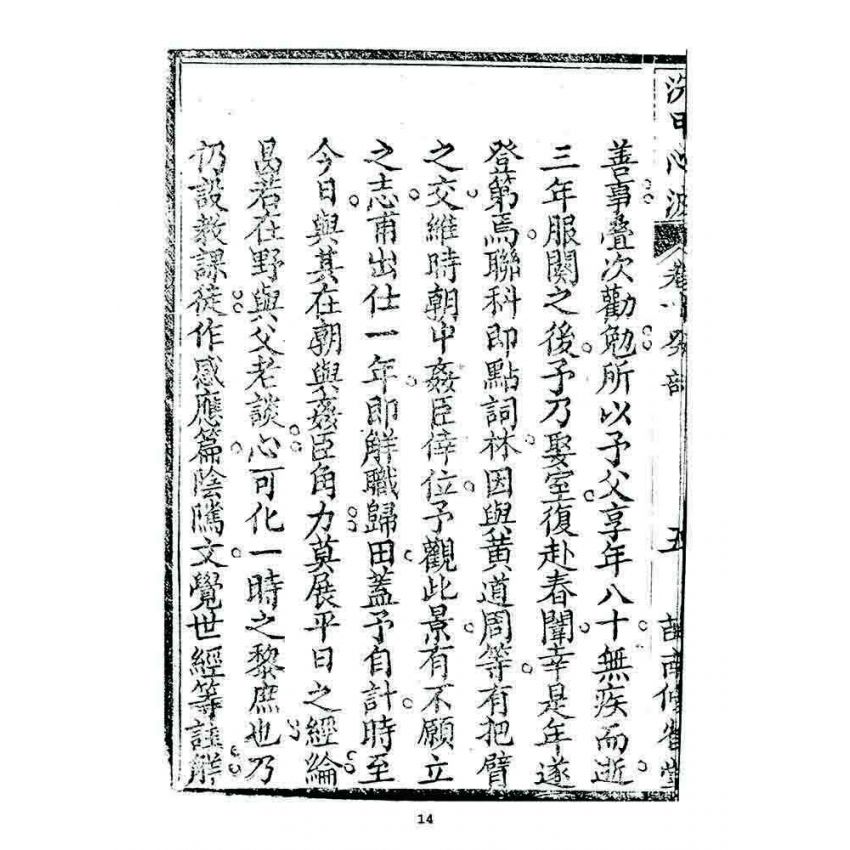 善事疊次勸勉所以予父享年八十無疾而逝
三年服闋之後予乃娶室復赴春闈幸是年遂
登第焉聯科即點詞林因與黃道周等有把臂
之交維時朝中姦臣倖位予觀此景有不願立
之志甫出仕一年即解職歸田蓋予自計時至
今日與其在朝與姦臣角力莫展平日之經綸
曷若在野與父老談心可化一時之黎庶也乃
仍設教課徒作感應篇陰隲文覺世經等註解
14